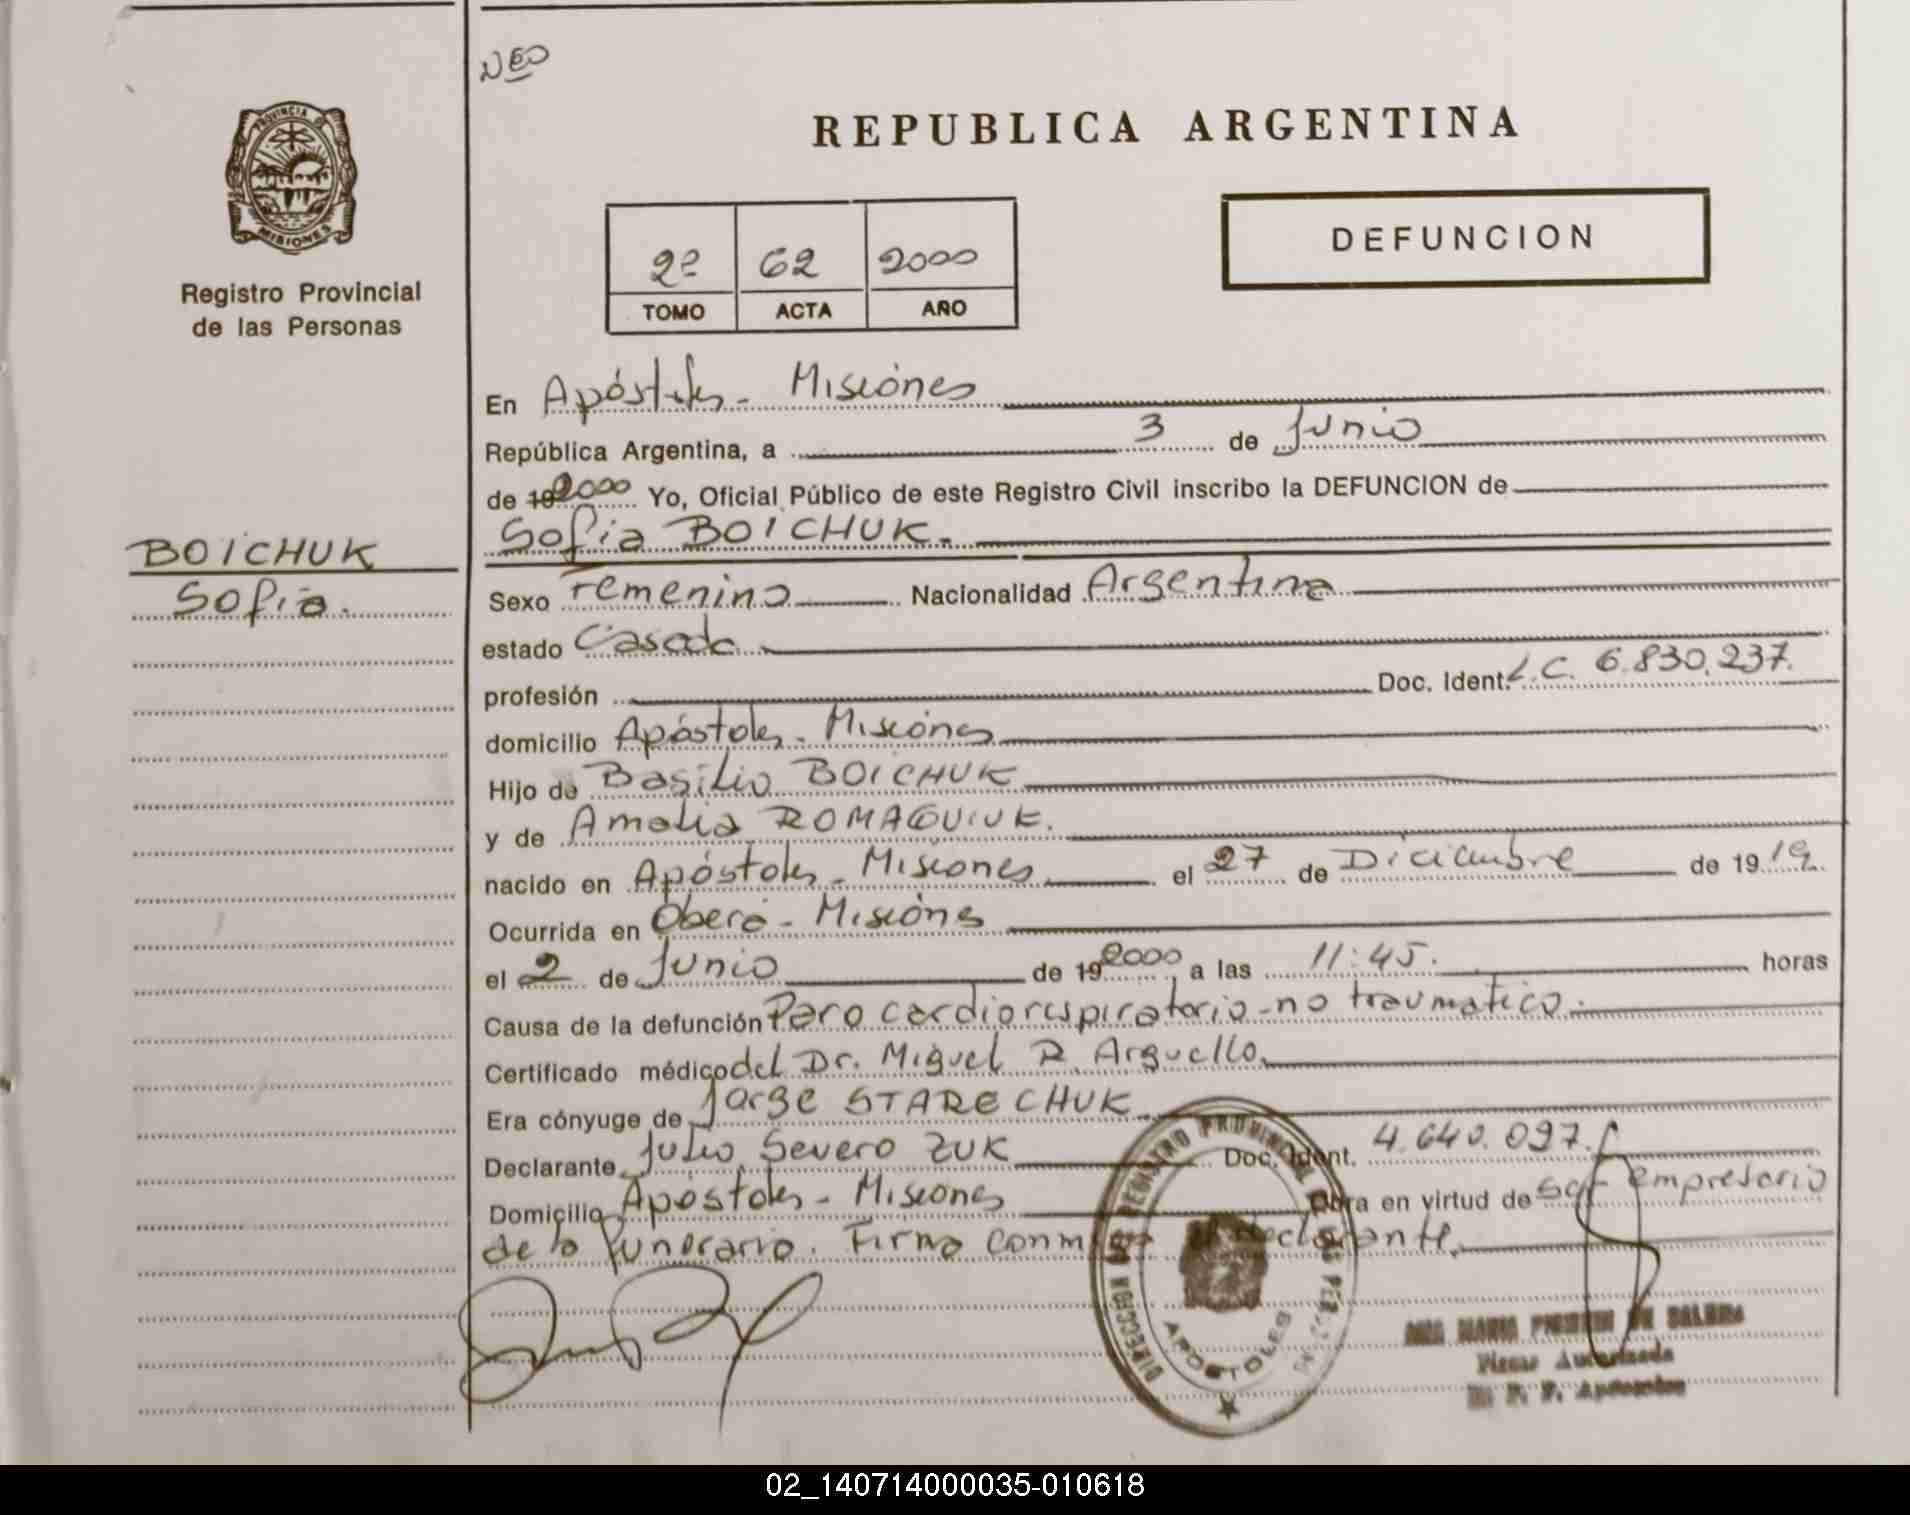 NEO
PROVINCIA D
MISIONES
Registro Provincial
de las Personas
REPUBLICA ARGENTINA
2º 62 2000
TOMO ACTA AÑO
DEFUNCION
En Apóstoles - Misiones
República Argentina, a 3 de Junio
de 192000 Yo, Oficial Público de este Registro Civil inscribo la DEFUNCION de
Sofia BOICHUK.
BOICHUK
Sofia.
Sexo Femenino Nacionalidad Argentina
estado Casada
profesión Doc. Ident. L.C. 6.830.237.
domicilio Apóstoles - Misiones
Hijo de Basilio BOICHUK
y de Amalia ROMAGUIUK.
nacido en Apóstoles - Misiones el 27 de Diciembre de 1919.
Ocurrida en Oberá - Misiones
el 2 de Junio de 192000, a las 11:45. horas
Causa de la defunción Paro cardiorespiratorio - no traumatico.
Certificado médico del Dr. Miguel R. Arguello.
Era cónyuge de Jorge STARECHUK
Declarante Julio Severo ZUK Doc. Ident. 4.640.097.
Domicilio Apóstoles - Misiones Obra en virtud de ser empresario
de la funeraria. Firma conmigo el declarante.
DIRECCION DEL REGISTRO PROVINCIAL DE LAS PERSONAS
APOSTOLES
ANA MARIA DE
Firma Autorizada
02_140714000035-010618